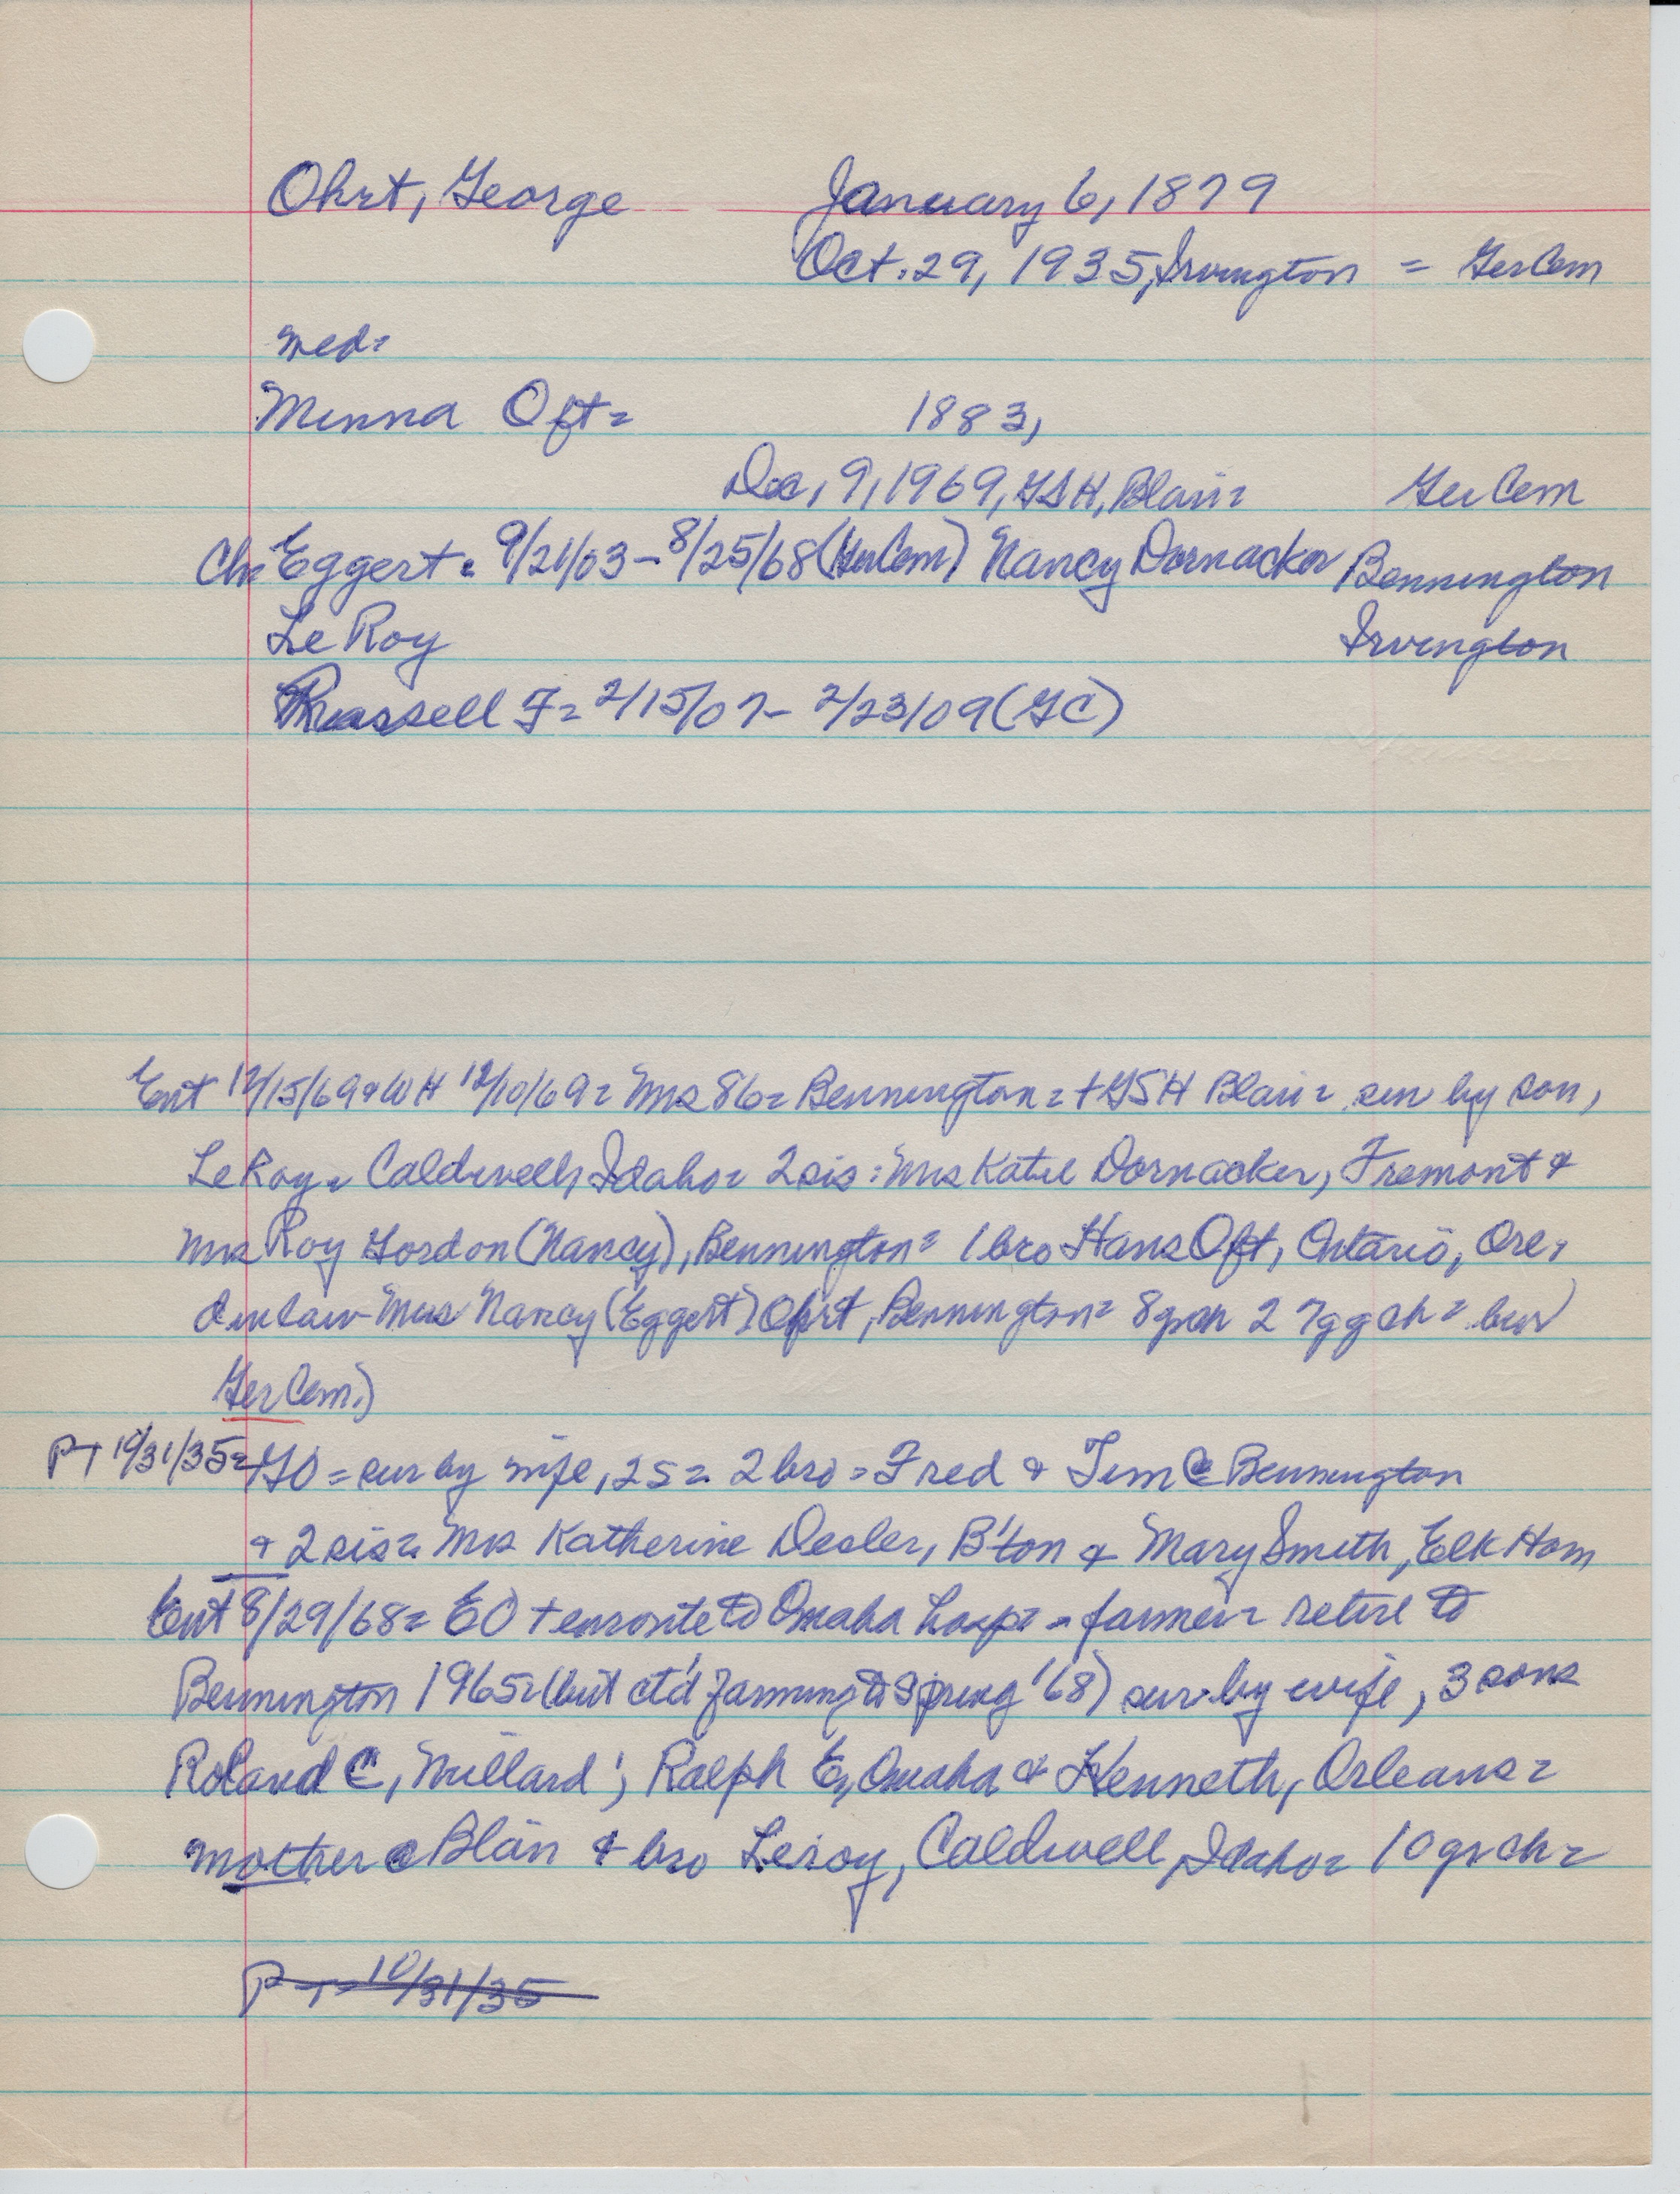 Ohrt, George January 6, 1879
Oct. 29, 1935, Irvington = GerCem
med=
Minna Oft= 1883,
Dec, 9, 1969, GSH, Blair= GerCem
Ch= Eggert = 9/21/03 - 8/25/68 (GerCem) Nancy Dornacker Bennington
LeRoy Irvington
Russell F= 2/15/07 - 2/23/09 (GC)
Ent 12/15/69 & WH 12/10/69= Mrs 86= Bennington= + GSH Blair= sur by son,
LeRoy= Caldwell, Idaho= 2 sis: Mrs Katie Dornacker, Fremont &
Mrs Roy Gordon (Nancy), Bennington= 1 bro Hans Oft, Ontario, Ore,
dinlaw Mrs Nancy (Eggert) Ohrt, Bennington= 8 grch 27 ggch= bur
GerCem)
PT 10/31/35= GO = sur by wife, 2s= 2 bro = Fred & Tim @ Bennington
& 2 sis= Mrs Katherine Desler, B'ton & Mary Smith, Elk Horn
Ent 8/29/68= EO + enroute to Omaha hosp= farmer= retire to
Bennington 1965= (but ct'd farming to Spring '68) sur by wife, 3 sons
Roland C, Millard; Ralph E, Omaha & Kenneth, Orleans=
mother @ Blair & bro Leroy, Caldwell, Idaho= 10 grch=
PT= 10/31/35